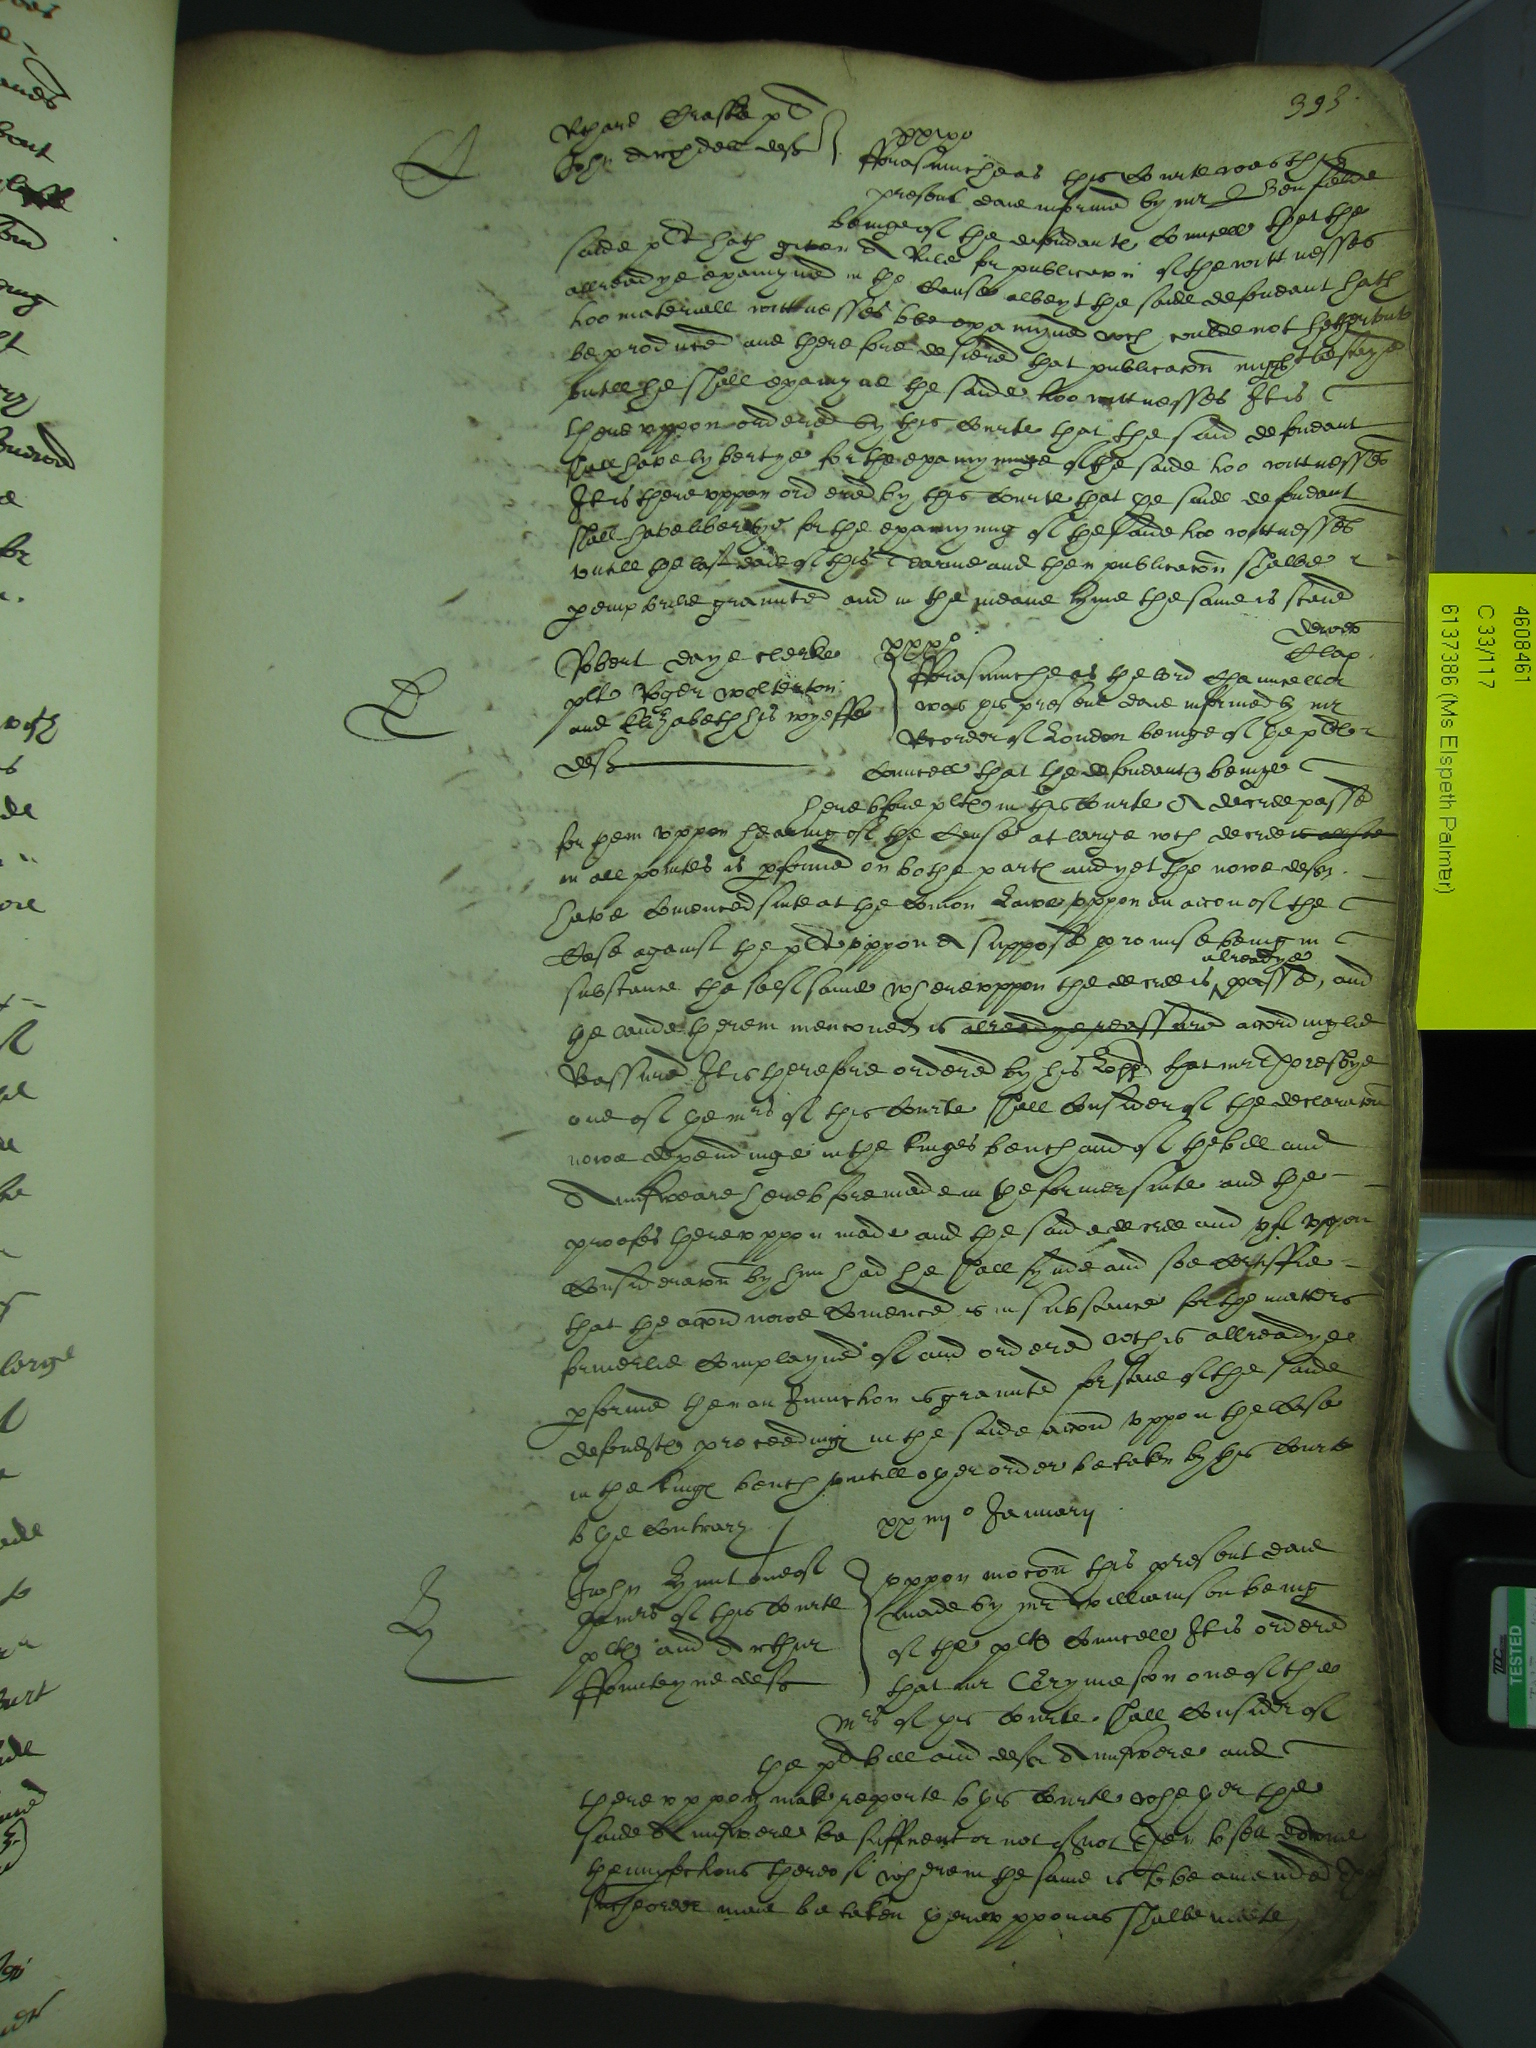 393
Richard Craste plt
John Archdall deft
xxixo
Fforasmuche as this Courte was this
present daie informed by mr Benfielde
beinge of the defendantes Councell that the
saide plt hath given A Rule for publicacon of the wittnesses
allreadye examyned in the Cause albeyt the saide defendant hath
too materiall wittnesses to be examyned wch coulde not hetherto
be produced and therefore desiered that publicacon might be stayed
untill he shall examyne the saide too wittnesses It is
thereuppon ordered by this Courte that the said defendant
shall have lybertye for the examyninge of the saide too wittnesses
It is thereuppon ordered by this Courte that the saide defendant
shall have libertye for the examynyng of the saide too wittnesses
untill the last daie of this Tearme and then publicacon shalbe
peremptorilie graunted and in the meane tyme the same is staied
Robert Daye Clerke
plt Roger Wolterton
and Elizabeth his wyeffe
deftes
Fforasmuche as the lord Chauncellor
was this present daie informed by mr
Recorder of London beinge of the pltes
Councell that the defendantes beinge
heretofore pltes in this Courte A decree passed
for them uppon hearing of the Cause at large wch decree is
in all pointes is performed on bothe partes and yet the nowe deftes
have Comenced suite at the Comon Lawe uppon an accon of the
Case against the plt uppon A supposed promise being in
substance the selfsame whereuppon the decree is alreadye passed, and
the lande therein mencioned is alreadye reassured accordinglie
Reassured It is therefore ordered by his Lopp that mr
one of the mrs of this Courte shall Consider of the declaracon
nowe dependinge in the kinges bench and of the bill and
Aunsweare heretofore made in the former suite and the
proofes thereuppon made and the saide decree and yf uppon
Consideracon by him had he shall fynde and soe Certiffie
that the accon nowe Comenced is in substance for the matters
formerlie Complayned of and ordered wch is allreadye
performed then an Iniunction is graunted for staie of the saide
defendtes proceedinges in the saide accon uppon the Case
in the kinges bench untill other order be taken by this Courte
to the Contrary
xxiiiio January
John Hunt one of
the mrs of this Courte
pltes and Arthur
Ffounteyne deft
Uppon mocon this present daie
made by mr Williamson being
of the pltes Councell It is ordered
that mr one of the
mrs of this Courte shall Consider of
the pltes bill and deftes Aunswere and
thereuppon make reporte to this Courte whether the
saide Aunswere be sufficient or not yf not then to sett downe
the imperfections thereof wherein the same is to be amended
suche order maie be taken thereuppon as shalbe meete
4608461
C 33/117
6137386 (Ms Elspeth Palmer)
TESTED